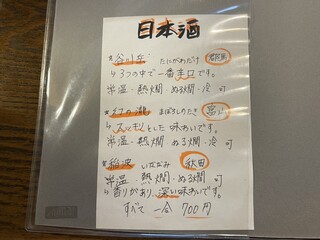 日本酒
*谷川岳 たにがわだけ 群馬
↳3つの中で一番辛口です。
常温・熱燗・ぬる燗・冷 可
*幻の瀧 まぼろしのたき 富山
↳スッキリとした味わいです。
常温・熱燗・ぬる燗・冷 可
*稲波 いななみ 秋田
常温・熱燗・ぬる燗 可
↳香りがあり、深い味わいです。
すべて 一合 700円